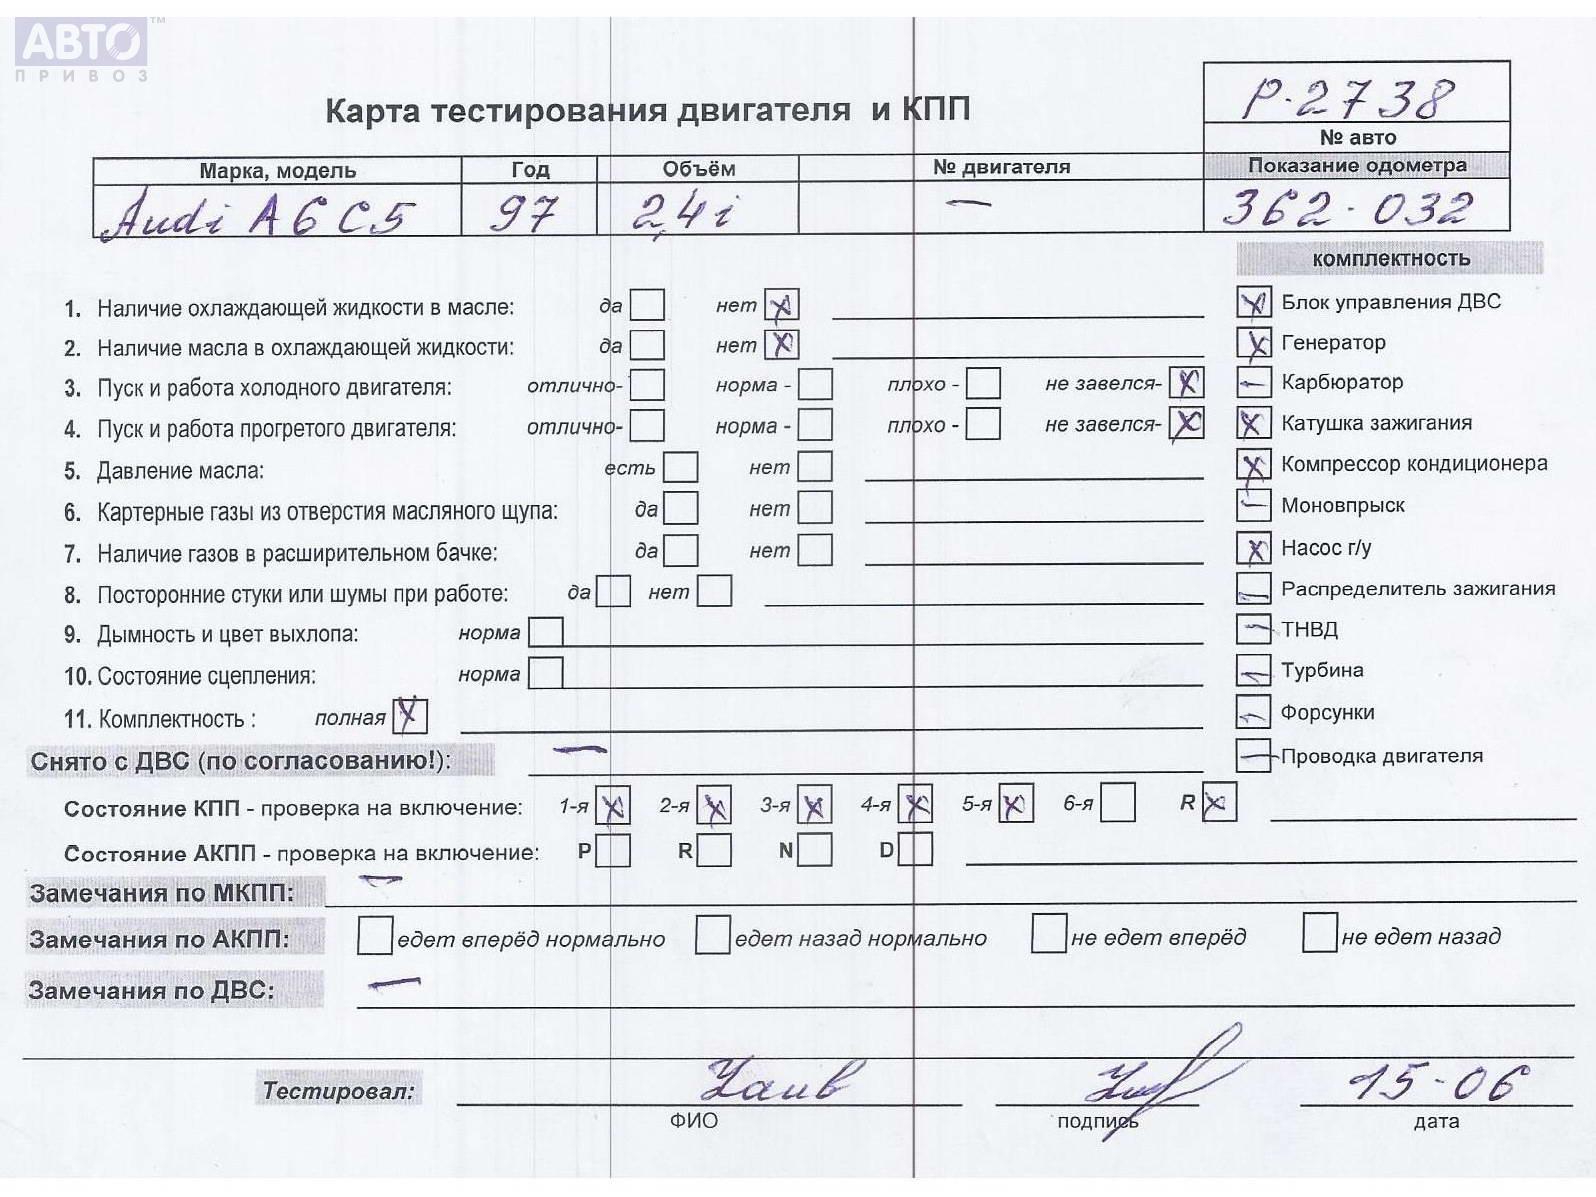 АВТО™
ПРИВОЗ
Карта тестирования двигателя и КПП
Р-2738
№ авто
Марка, модель Год Объём № двигателя Показание одометра
Audi A6 C5 97 2,4i — 362-032
комплектность
1. Наличие охлаждающей жидкости в масле: да нет X
X Блок управления ДВС
2. Наличие масла в охлаждающей жидкости: да нет X
X Генератор
3. Пуск и работа холодного двигателя: отлично- норма - плохо - не завелся- X
— Карбюратор
4. Пуск и работа прогретого двигателя: отлично- норма - плохо - не завелся- X
X Катушка зажигания
5. Давление масла: есть нет
X Компрессор кондиционера
6. Картерные газы из отверстия масляного щупа: да нет
— Моновпрыск
7. Наличие газов в расширительном бачке: да нет
X Насос г/у
8. Посторонние стуки или шумы при работе: да нет
— Распределитель зажигания
9. Дымность и цвет выхлопа: норма
— ТНВД
10. Состояние сцепления: норма
— Турбина
11. Комплектность : полная X
— Форсунки
Снято с ДВС (по согласованию!): —
— Проводка двигателя
Состояние КПП - проверка на включение: 1-я X 2-я X 3-я X 4-я X 5-я X 6-я R X
Состояние АКПП - проверка на включение: P R N D
Замечания по МКПП: —
Замечания по АКПП: едет вперёд нормально едет назад нормально не едет вперёд не едет назад
Замечания по ДВС: —
Тестировал: 15-06
ФИО подпись дата